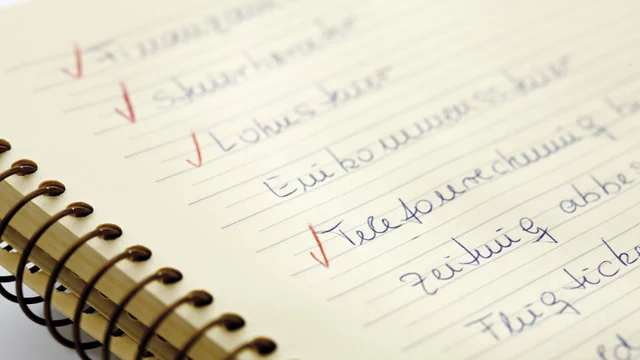 Finanzamt
Steuerberater
Lohnsteuer
Einkommenssteuer
Telefonrechnung
Zeitung abbes
Flugticke